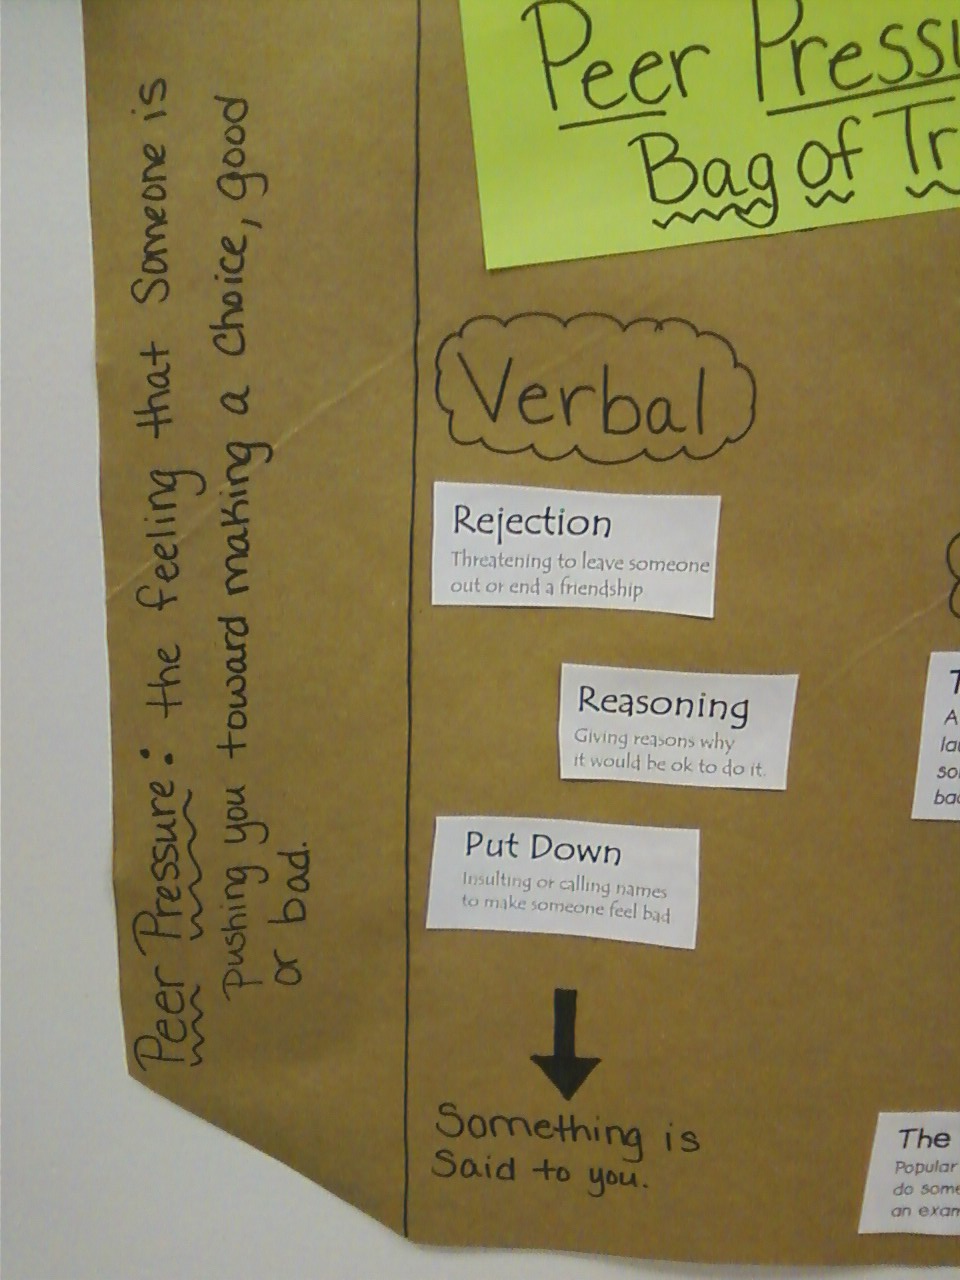 Peer Pressu
Bag of Tr
Peer Pressure: the feeling that Someone is
pushing you toward making a Choice, good
or bad.
Verbal
Rejection
Threatening to leave someone
out or end a friendship
Reasoning
Giving reasons why
it would be ok to do it.
Put Down
Insulting or calling names
to make someone feel bad
Something is
Said to you.
T
A
lau
so
bad
The
Popular
do some
an exam